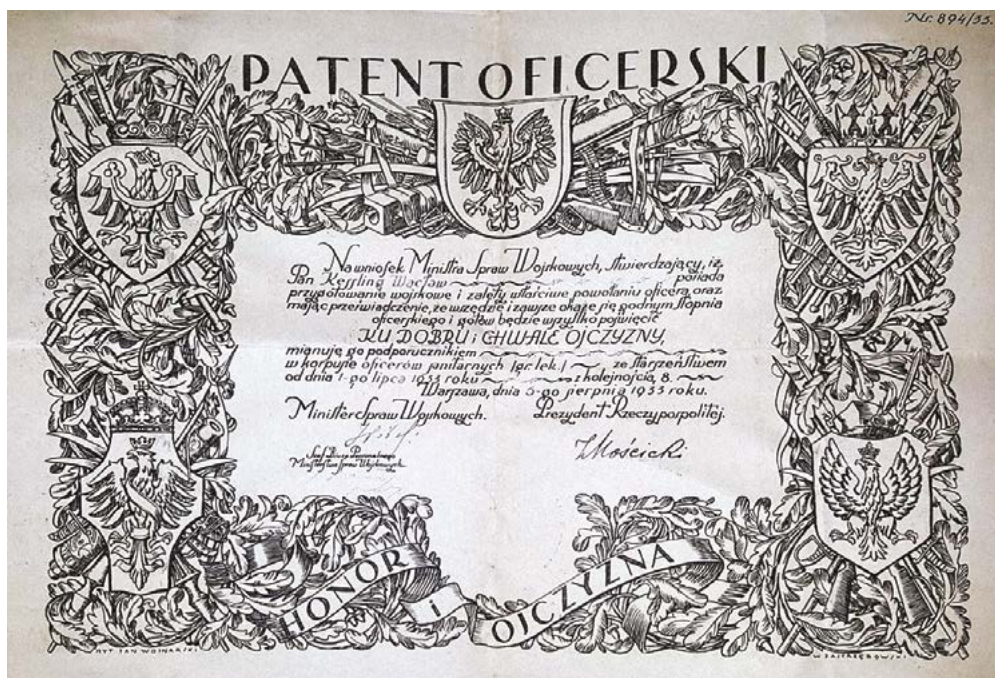 Nr. 894/33.
PATENT OFICERSKI
Na wniosek Ministra Spraw Wojskowych, stwierdzający, iż
Pan Kessling Wacław posiada
przygotowanie wojskowe i zalety właściwe powołaniu oficera, oraz
mając przeświadczenie, że wszędzie i zawsze okaże się godnym stopnia
oficerskiego i gotów będzie wszystko poświęcić
KU DOBRU i CHWALE OJCZYZNY,
mianuję go podporucznikiem
w korpusie oficerów sanitarnych (gr. lek.) ze starszeństwem
od dnia 1-go lipca 1933 roku z kolejnością 8.
Warszawa, dnia 5-go sierpnia 1933 roku.
Minister Spraw Wojskowych. Prezydent Rzeczypospolitej.
IMościcki
Szef Biura Personalnego
Ministerstwa Spraw Wojskowych
HONOR i OJCZYZNA
RYT. JAN WOJNARSKI
W. JASTRZĘBOWSKI